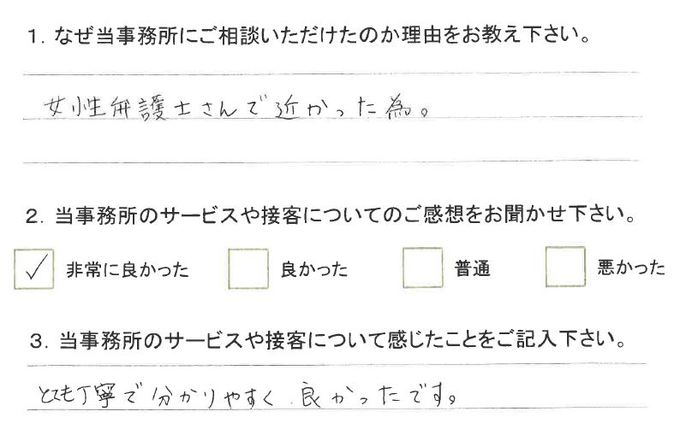 1. なぜ当事務所にご相談いただけたのか理由をお教え下さい。
女性弁護士さんで近かった為。
2. 当事務所のサービスや接客についてのご感想をお聞かせ下さい。
✓ 非常に良かった 良かった 普通 悪かった
3. 当事務所のサービスや接客について感じたことをご記入下さい。
とても丁寧で分かりやすく良かったです。